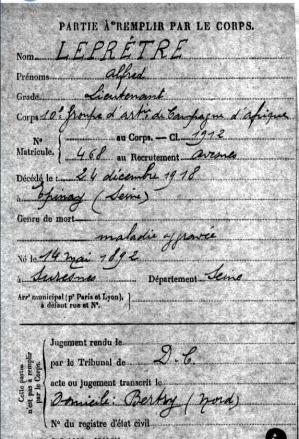 PARTIE À REMPLIR PAR LE CORPS.
Nom LEPRÊTRE
Prénoms Alfred
Grade Lieutenant
Corps 10e Groupe d'artie de Campagne d'Afrique
N° Matricule. { au Corps. — Cl. 1912
468 au Recrutement Avesnes
Décédé le : 24 décembre 1918
à Epinay (Seine)
Genre de mort
maladie aggravée
Né le 14 mai 1892
à Suresnes Département Seine
Arrt municipal (pr Paris et Lyon),
à défaut rue et N°.
Cette partie n'est pas à remplir par le Corps.
Jugement rendu le
par le Tribunal de D.C.
acte ou jugement transcrit le
Domicile: (Nord)
N° du registre d'état civil